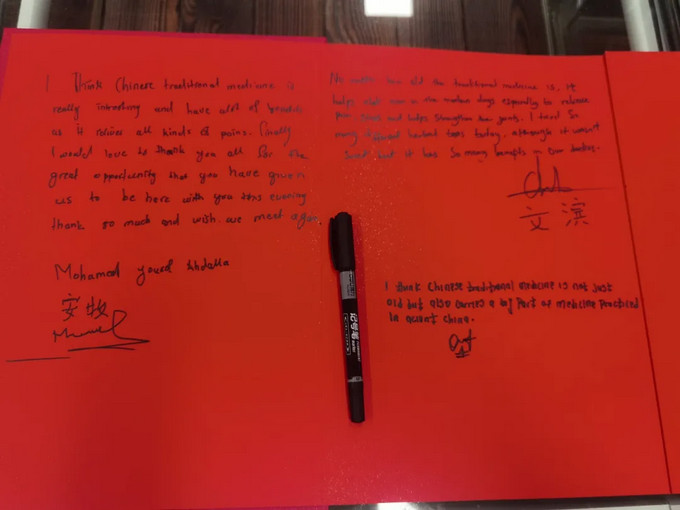 I Think Chinese traditional medicine is
really intresting and have alot of benefits
as is relives all kinds of pains. Finally
I would love to thank you all for the
great opportunity that you have given
us to be here with you this evening
thank so much and wish we meet again
Mohamed yousef Abdalla
安牧
No matter how old the traditional medicine is, it
helps right now in the modern days especially to release
pain and helps strengthen the joints. I tried so
many different herbal teas today, although it wasn't
sweet but it has so many benefits in our bodies.
文滨
I think Chinese traditional medicine is not just
old but also carries a big part of medicine practiced
in ancient China.
记号笔